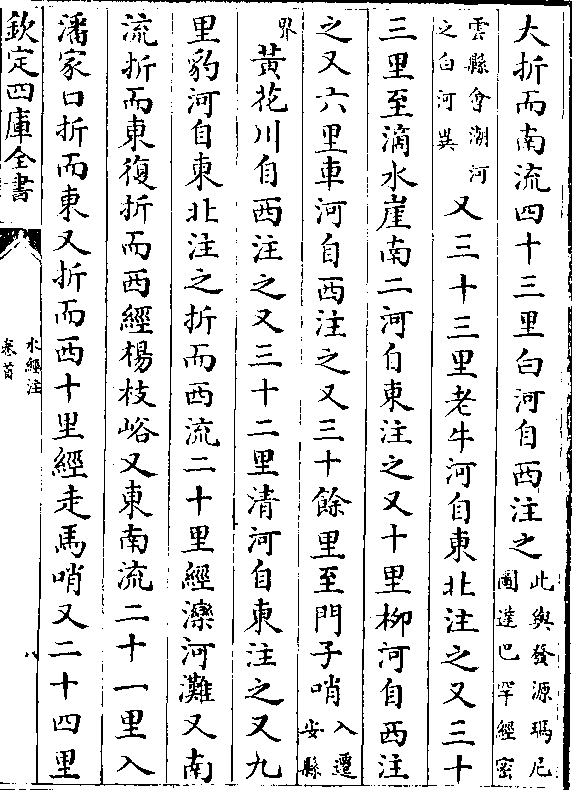 大折而南流四十三里白河自西注之此與發源瑪尼圖達巴罕經密
雲縣會潮河之白河異又三十三里老牛河自東北注之又三十
三里至滴水崖南二河自東注之又十里柳河自西注
之又六里車河自西注之又三十餘里至門子哨入遷安縣
界黃花川自西注之又三十二里清河自東注之又九
里豹河自東北注之折而西流二十里經灤河灘又南
流折而東復折而西經楊枝峪又東南流二十一里入
潘家口折而東又折而西十里經走馬哨又二十四里
欽定四庫全書
水經注
卷首
八